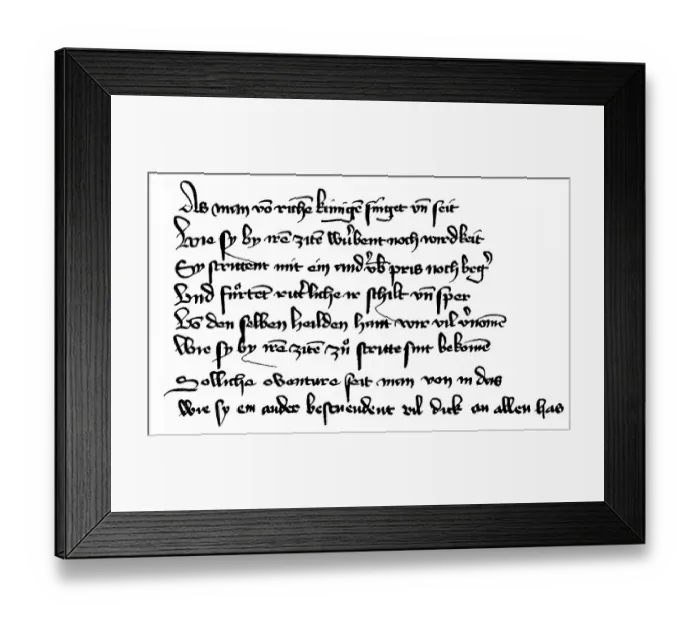 Als man vō richē kūnigē singet vn̄ seit
Wie sy by irē zitē wůrbent noch wirdkeit
Sy strittent mit ein and' vb pris noch beg'
Vnd fůrtēt rit'liche ir schilt vn̄ sper
Vō den selben heilden hant wir vil v'nomē
Wie sy by irē zitē zů stritte sint bekomē
Solliche obenture seit man von in das
Wie sy ein ander bestuendent vil dick an allen has